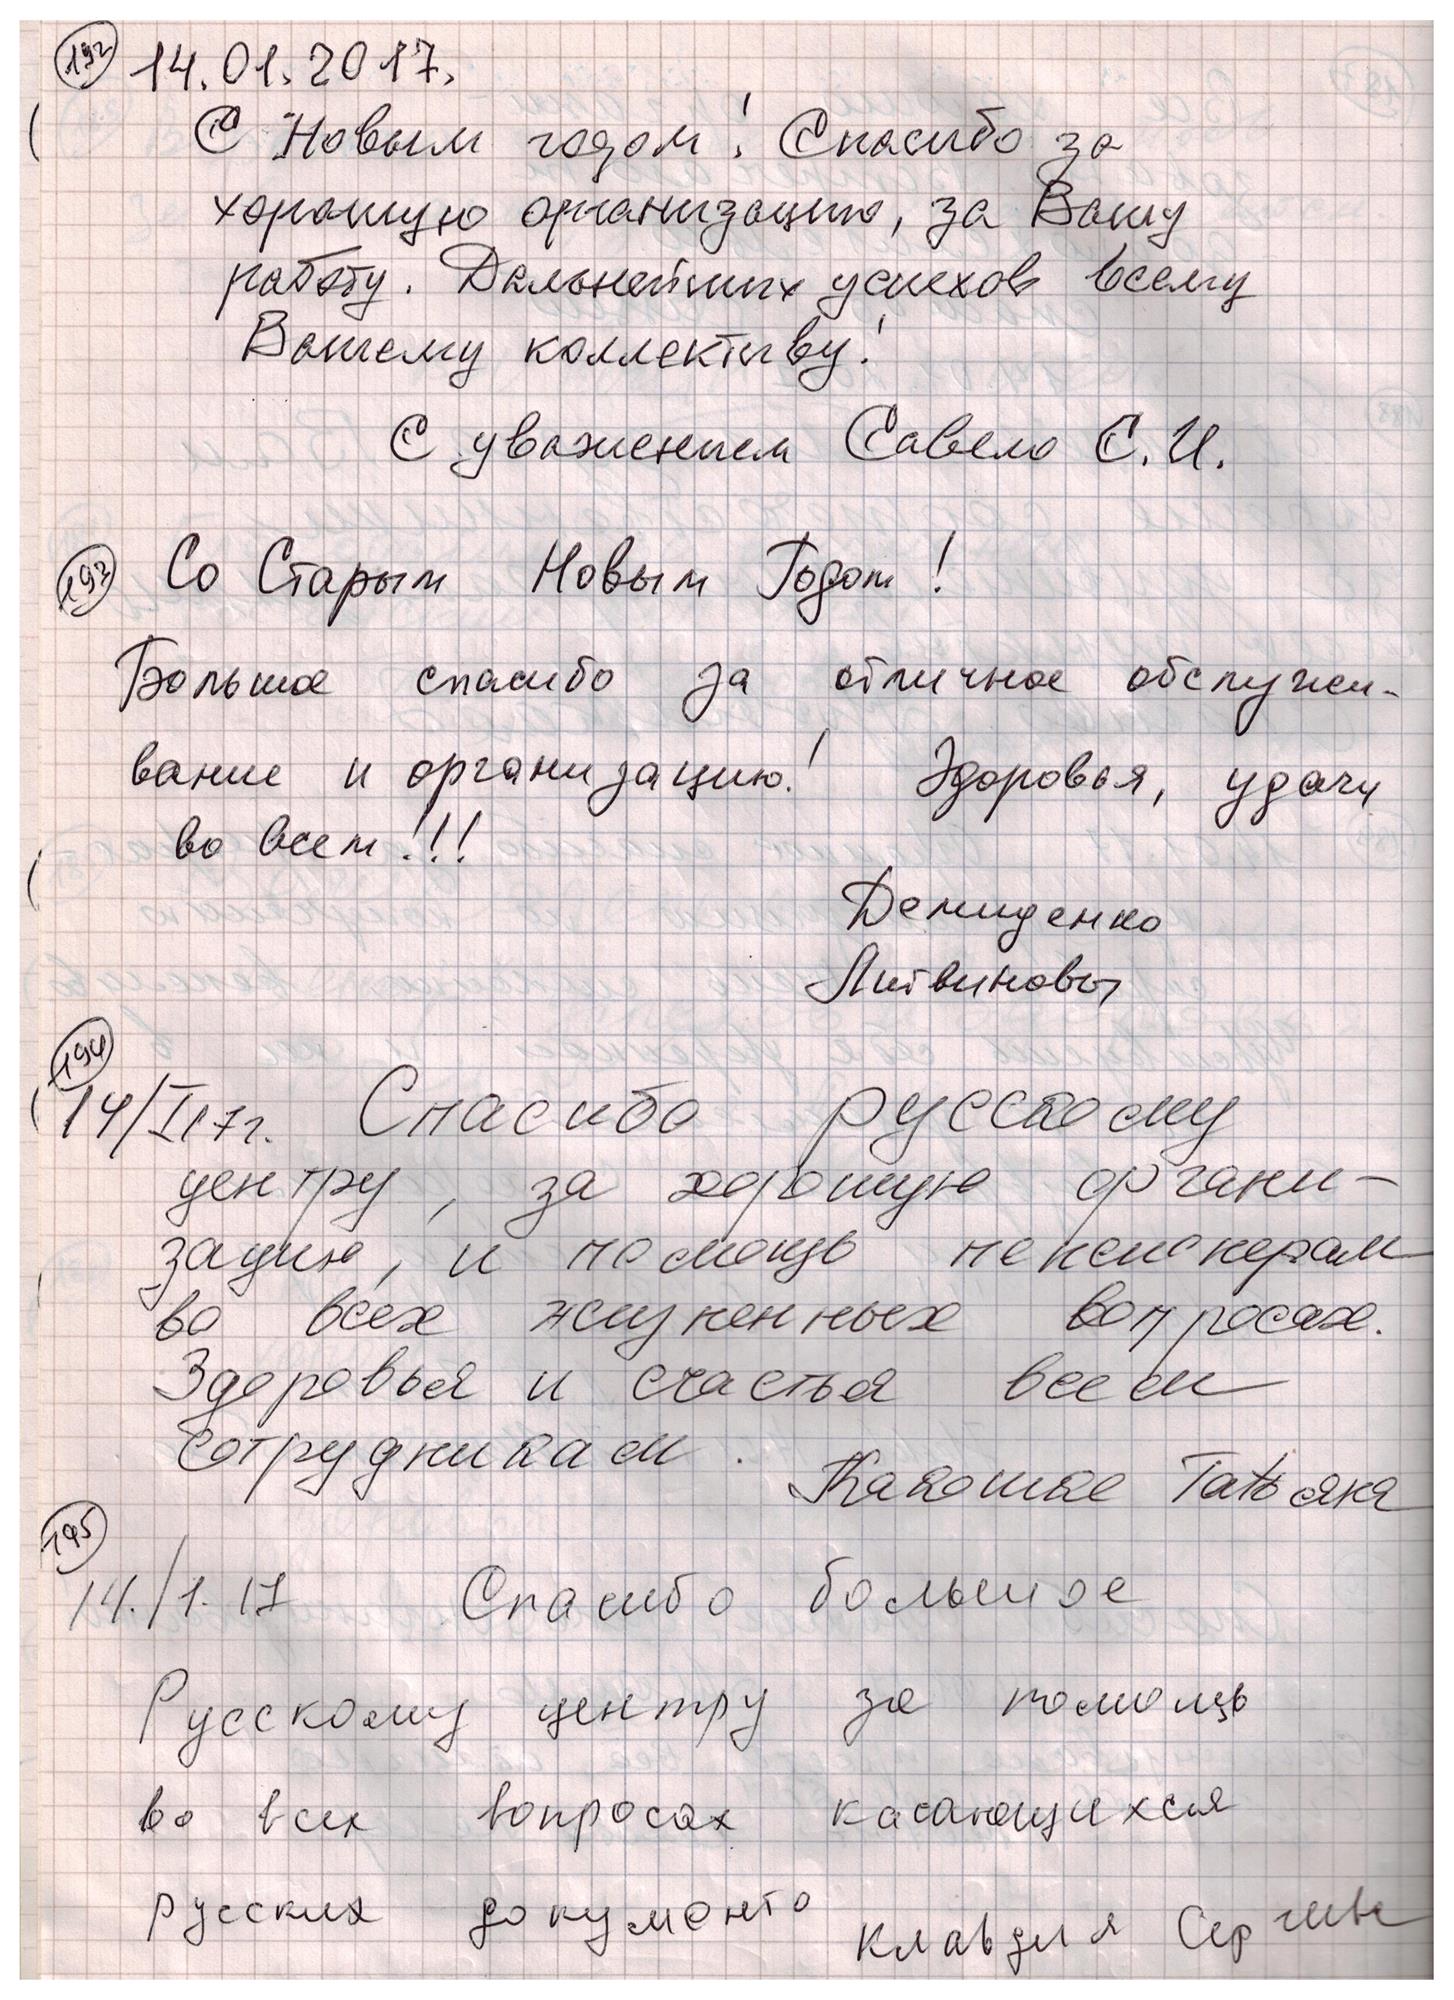 192 14.01.2017.
С Новым годом! Спасибо за
хорошую организацию, за Вашу
работу. Дальнейших успехов всему
Вашему коллективу!
С уважением Савело С.И.
193 Со Старым Новым Годом!
Большое спасибо за отличное обслужи-
вание и организацию! Здоровья, удачи
во всем!!!
Демиденко
Литвиновы
194
14/I 17г. Спасибо русскому
центру, за хорошую органи-
зацию, и помощь пенсионерам
во всех жизненных вопросах.
Здоровья и счастья всем
сотрудникам.
Татьяна
195
14./1.17 Спасибо большое
Русскому центру за помощь
во всех вопросах касающихся
русских документо
Клавдия